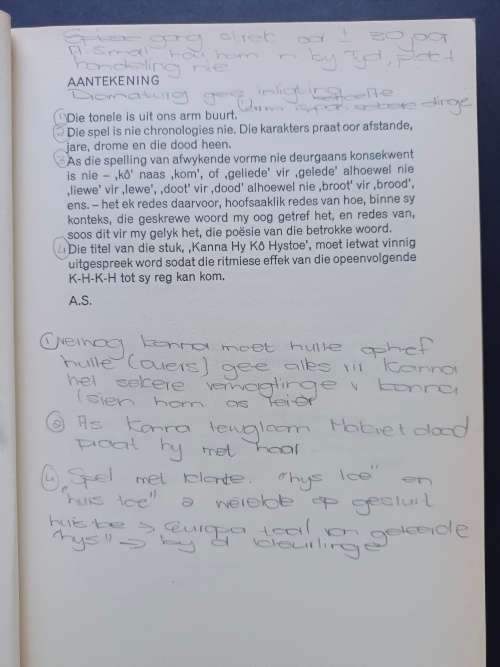 gang strek oor ± 30 jaar
hou hom n by tyd, plot
handeling nie
AANTEKENING
Dramaturg gee inligting
① Die tonele is uit ons arm buurt.
② Die spel is nie chronologies nie. Die karakters praat oor afstande,
jare, drome en die dood heen.
③ As die spelling van afwykende vorme nie deurgaans konsekwent
is nie – ‚kô’ naas ‚kom’, of ‚geliede’ vir ‚gelede’ alhoewel nie
‚liewe’ vir ‚lewe’, ‚doot’ vir ‚dood’ alhoewel nie ‚broot’ vir ‚brood’,
ens. – het ek redes daarvoor, hoofsaaklik redes van hoe, binne sy
konteks, die geskrewe woord my oog getref het, en redes van,
soos dit vir my gelyk het, die poësie van die betrokke woord.
④ Die titel van die stuk, ‚Kanna Hy Kô Hystoe’, moet ietwat vinnig
uitgespreek word sodat die ritmiese effek van die opeenvolgende
K-H-K-H tot sy reg kan kom.
A.S.
① kanna moet hulle ophef
hulle (ouers) gee alles vir Kanna
het sekere verwagtinge v kanna
(sien hom as leier
② As Kanna terugkom Makiet dood
praat hy met haar
④ Spel met klanke. "hys toe" en
"huis toe" 2 wêrelde op gesluit
huis toe → Europa taal van geleerde
"hys" → by d kleurlinge